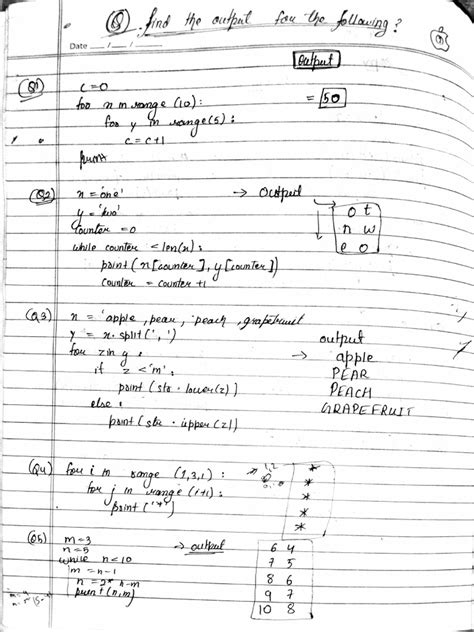 Q. find the output for the following?
Date ___/___/___
Output
Q1 c=0
for x in range (10):
= 50
for y in range(5):
c = c+1
print
Q2 x = 'one' → Output
y = 'two'
o t
counter = 0
n w
while counter < len(x):
e o
print (x[counter], y[counter])
counter = counter +1
Q3 x = 'apple, pear, peach, grapefruit
y = x.split(',')
output
for z in y:
→ apple
if z < 'm':
PEAR
print (str.lower(z))
PEACH
else:
GRAPEFRUIT
print (str.upper(z))
Q4 for i in range (1,3,1):
*
for j in range (i+1):
*
print ('*')
*
*
*
Q5 m=3
n=5
→ output
6 4
while n<10
7 5
m = n-1
8 6
n = 2* n-m
9 7
print (n,m)
10 8